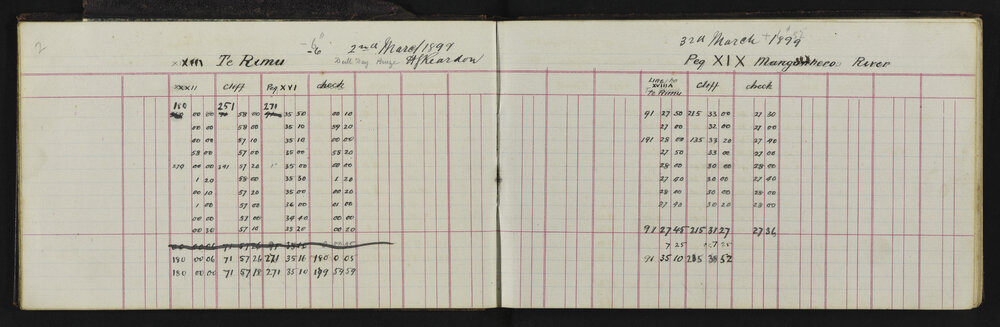 2
-6" 2nd March 1899
XXIII Te Rimu Dull Day Breeze H J Reardon
XXII Cliff Peg XVI check
180 251 271
00 00 58 00 35 50 00 10
00 00 58 00 35 10 59 20
00 00 57 10 35 10 00 00
58 00 57 00 35 00 58 20
270 00 00 341 57 20 35 00 00 00
1 20 58 00 35 30 1 20
00 10 57 20 35 00 00 20
1 00 57 00 36 00 01 00
00 00 57 00 34 40 00 00
00 30 57 10 35 20 00 20
180 00 06 71 57 26 271 35 16 180 0 05
180 00 00 71 57 18 271 35 10 179 59 59
3rd March 1899
Peg XIX Mangawhero River
Line to
XVIIIA Cliff check
Te Rimu
91 27 50 215 33 00 27 30
27 00 32 00 27 00
181 28 00 135 33 20 27 40
27 50 33 00 27 00
28 00 30 00 28 00
27 40 30 00 27 40
28 10 30 00 28 00
27 40 30 20 28 00
91 27 45 215 31 27 27 36
7 25 7 25
91 35 10 215 38 52